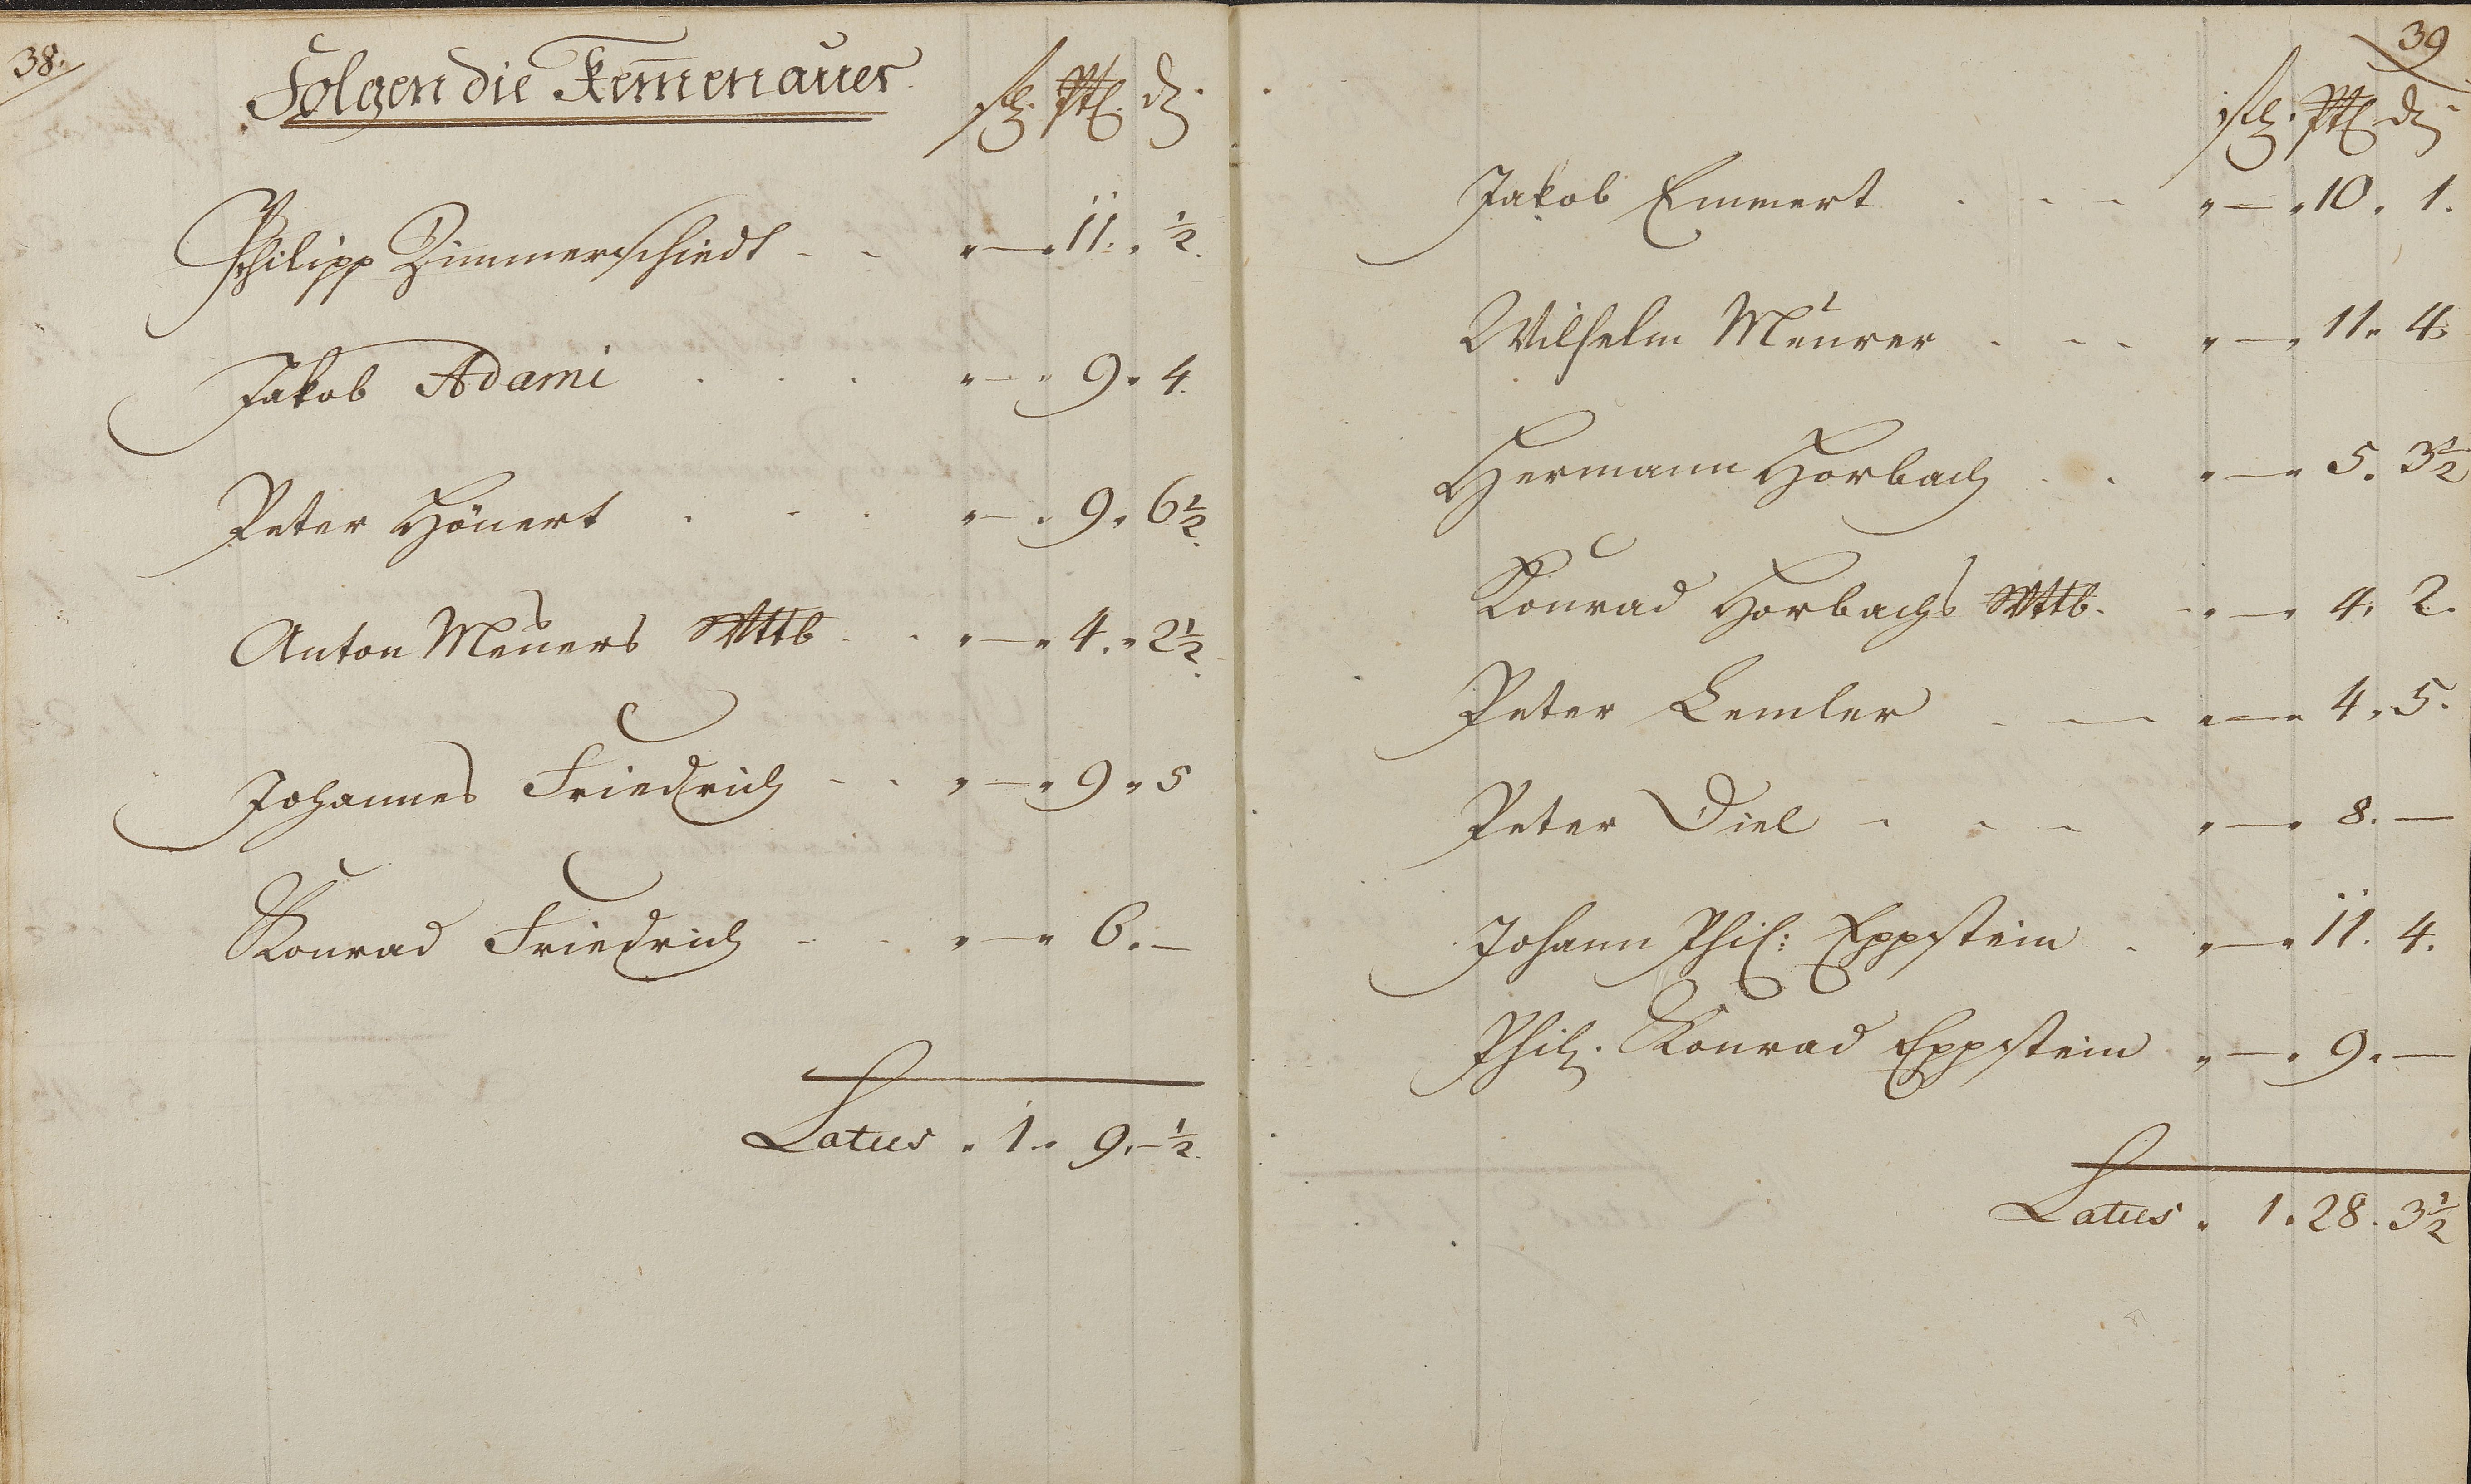 38.
Folgen die Kem̅enauer.
fl. Xtl. ₰.
Philipp Zimmerschiedt - - " — " 11. " ½.
Jakob Adami . . . " — " 9 " 4.
Peter Hönert . . . " — " 9 " 6½.
Anton Meuers Wttb - - " — " 4. " 2½.
Johannes Friedrich - - " — " 9 " 5
Konrad Friedrich - - " — " 6. —
Latus " 1 " 9. — ½.
39
Jakob Emmert . - - " — " 10 " 1.
Wilhelm Meurer . - - " — " 11 " 4.
Hermann Horbach . . " — " 5. 3½
Konrad Horbachs Wttb. - " — " 4. 2.
Peter Lemler . — " — " 4 " 5.
Peter Diel - - - " — " 8. —
Johann Phil: Eppstein . " — " 11. 4.
Phil. Konrad Eppstein " — " 9. —
Latus " 1 " 28. 3½